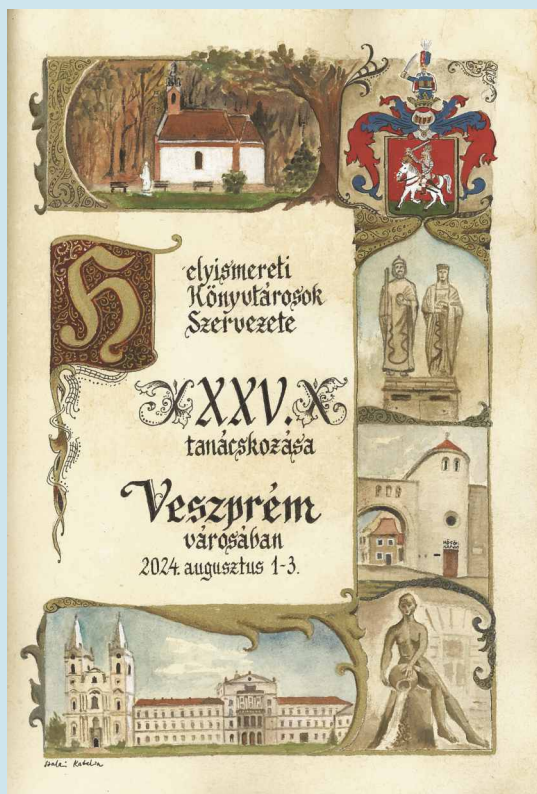 Helyismereti
Könyvtárosok
Szervezete
XXV.
tanácskozása
Veszprém
városában
2024. augusztus 1-3.